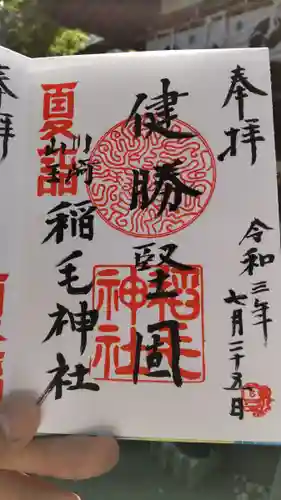 奉拝
令和三年
七月二十五日
健勝堅固
夏詣
川崎
山王
稲毛神社
稲毛
神社
拝